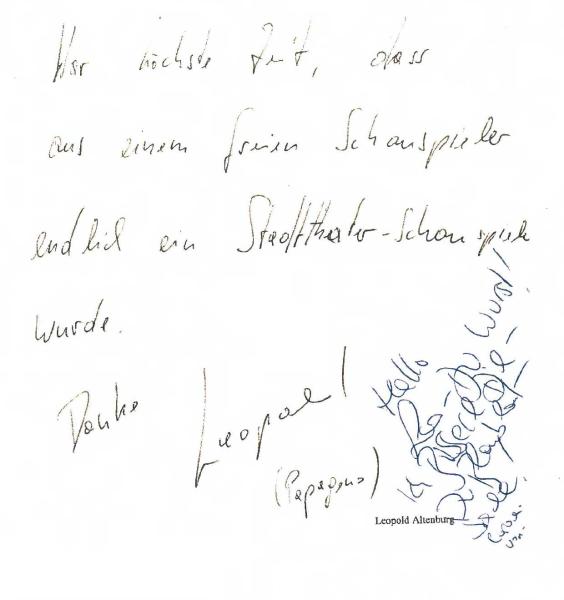 War höchste Zeit, dass
aus einem freien Schauspieler
endlich ein Stadttheater-Schauspieler
wurde.
Danke Leopold
(Papageno)
Leopold Altenburg
Hallo
Du Wurst!